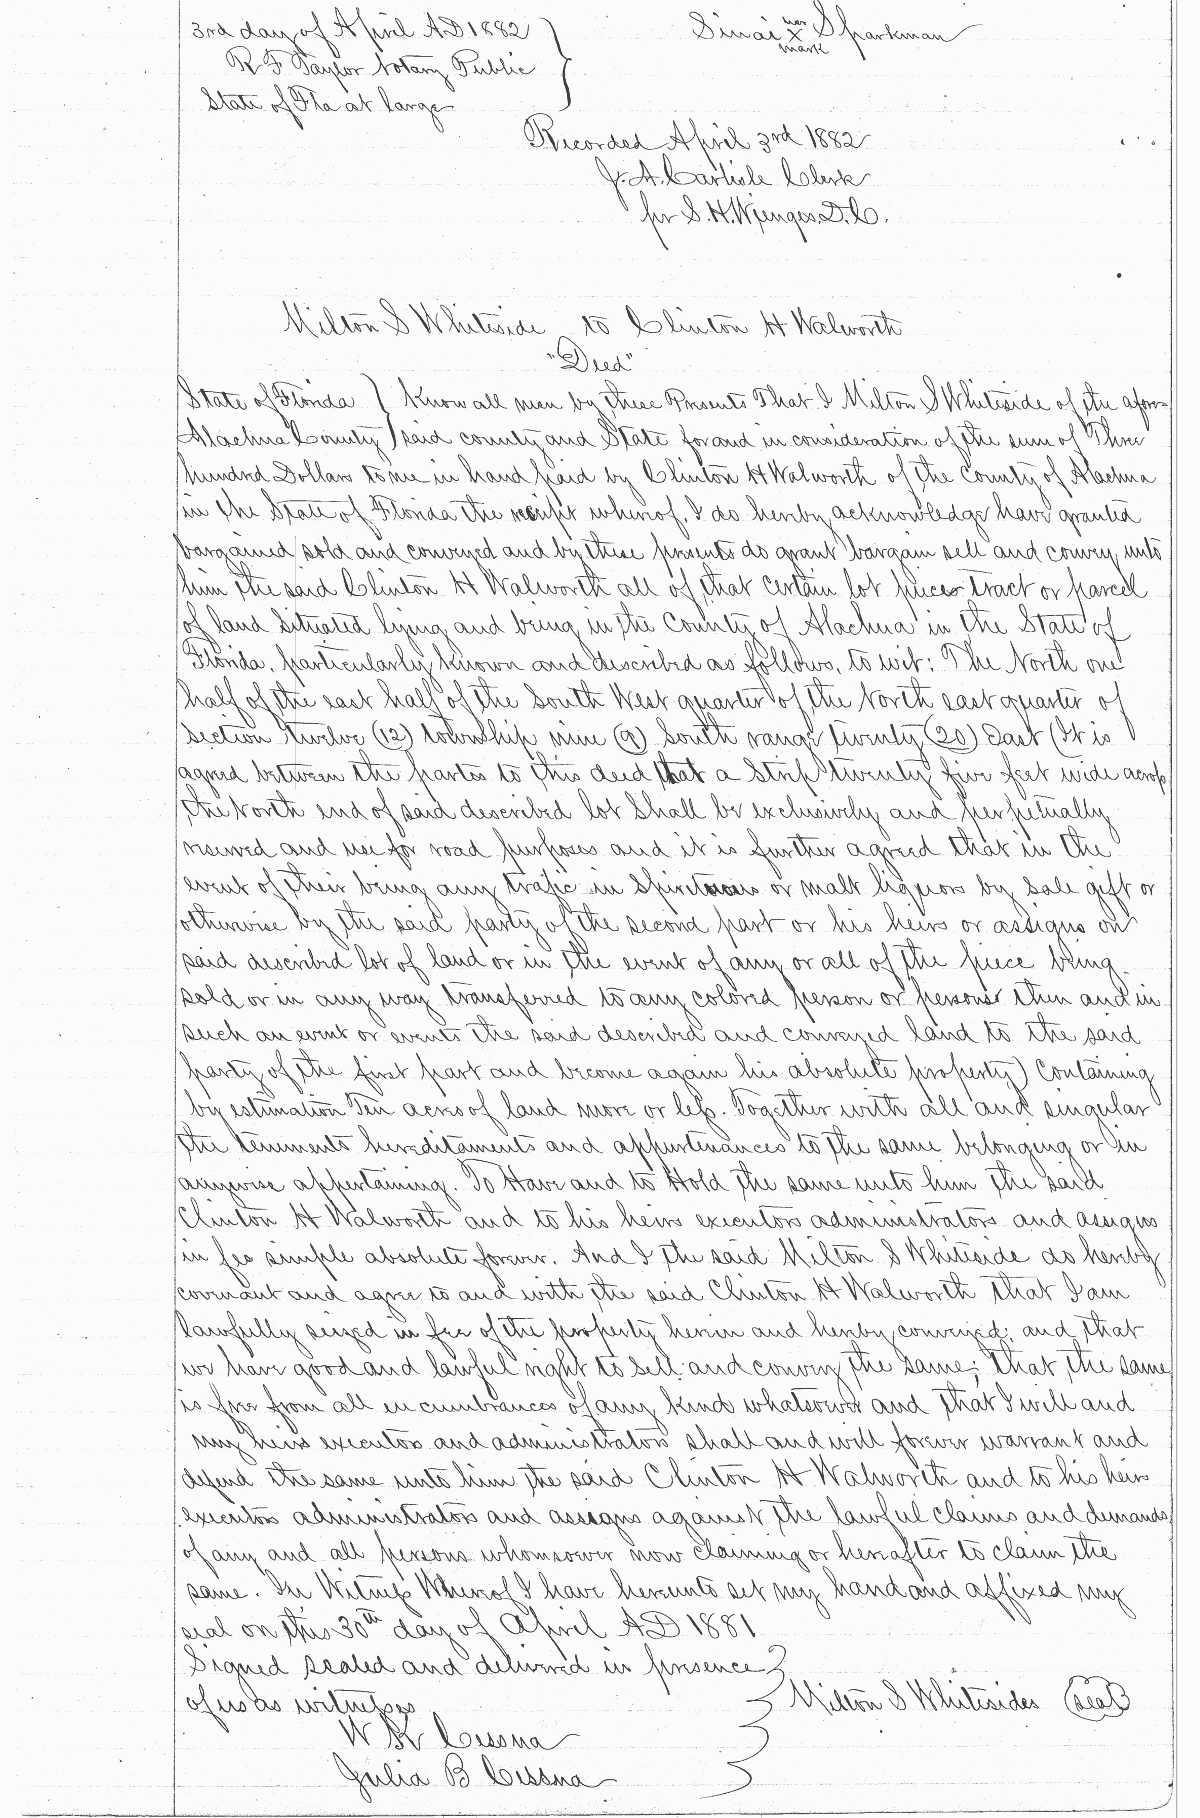 3rd day of April AD 1882 } Sinai her x mark Sparkman
R F Taylor Notary Public
State of Fla at large
Recorded April 3rd 1882
J. A. Carlisle Clerk
per S. H. Wienges D. C.
Milton S Whiteside to Clinton H Walworth
"Deed"
State of Florida } Know all men by these Presents That I Milton S Whiteside of the afore=
Alachua County } said county and State for and in consideration of the sum of Three
hundred Dollars to me in hand paid by Clinton H Walworth of the County of Alachua
in the State of Florida the receipt whereof, I do hereby acknowledge have granted
bargained sold and conveyed and by these presents do grant bargain sell and convey unto
him the said Clinton H Walworth all of that certain lot piece tract or parcel
of land situated lying and being in the County of Alachua in the State of
Florida, particularly known and described as follows, to wit: The North one
half of the east half of the South West quarter of the North east quarter of
section twelve (12) township nine (9) South range twenty (20) East (It is
agreed between the parties to this deed that a Strip twenty five feet wide across
the North end of said described lot shall be exclusively and perpetually
reserved and use for road purposes and it is further agreed that in the
event of their being any trafic in Spirituous or malt liquors by sale gift or
otherwise by the said party of the second part or his heirs or assigns on
said described lot of land or in the event of any or all of the piece being
sold or in any way transferred to any colored person or persons then and in
such an event or events the said described and conveyed land to the said
party of the first part and become again his absolute property) Containing
by estimation Ten acres of land more or less. Together with all and singular
the teniments hereditaments and appurtenances to the same belonging or in
anywise appertaining. To Have and to Hold the same unto him the said
Clinton H Walworth and to his heirs executors administrators and assigns
in fee simple absolute forever. And I the said Milton S Whiteside do hereby
covenant and agree to and with the said Clinton H Walworth that I am
lawfully seized in fee of the property herein and hereby conveyed; and that
we have good and lawful right to sell and convey the same; that the same
is free from all incumbrances of any kind whatsoever and that I will and
my heirs executors and administrators shall and will forever warrant and
defend the same unto him the said Clinton H Walworth and to his heirs
executors administrators and assigns against the lawful claims and demands
of any and all persons whomsoever now claiming or hereafter to claim the
same. In Witness Whereof I have hereunto set my hand and affixed my
seal on this 30th day of April AD 1881
Signed sealed and delivered in presence }
of us as witnesses } Milton S Whitesides (seal)
W K Cessna }
Julia B Cessna }